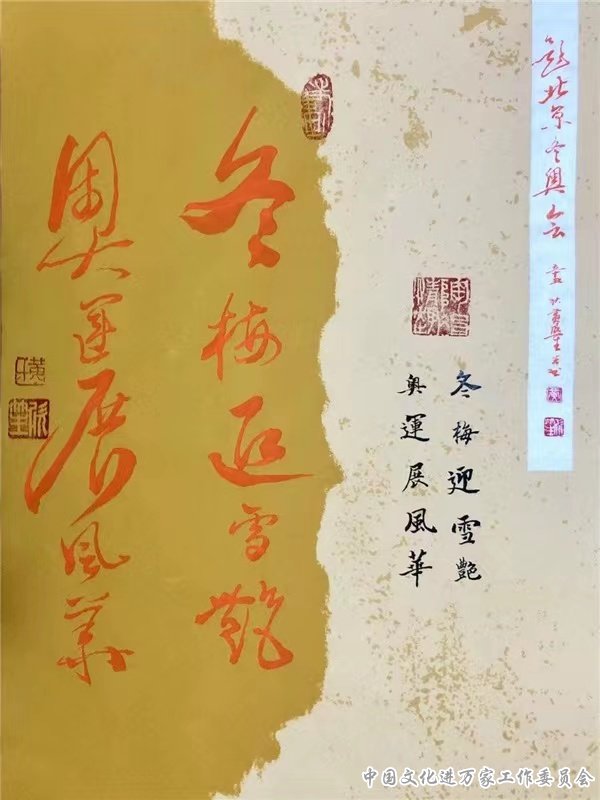 题北京冬奥会
冬梅迎雪艷
奥運展風華
冬梅迎雪艷
奥運展風華
中国文化进万家工作委员会